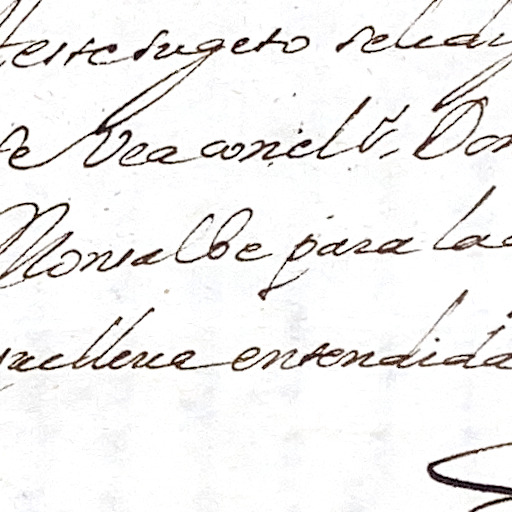 este sugeto se le dy
se Vea con el S.r Don
Monsalbe para la
que lleva entendida